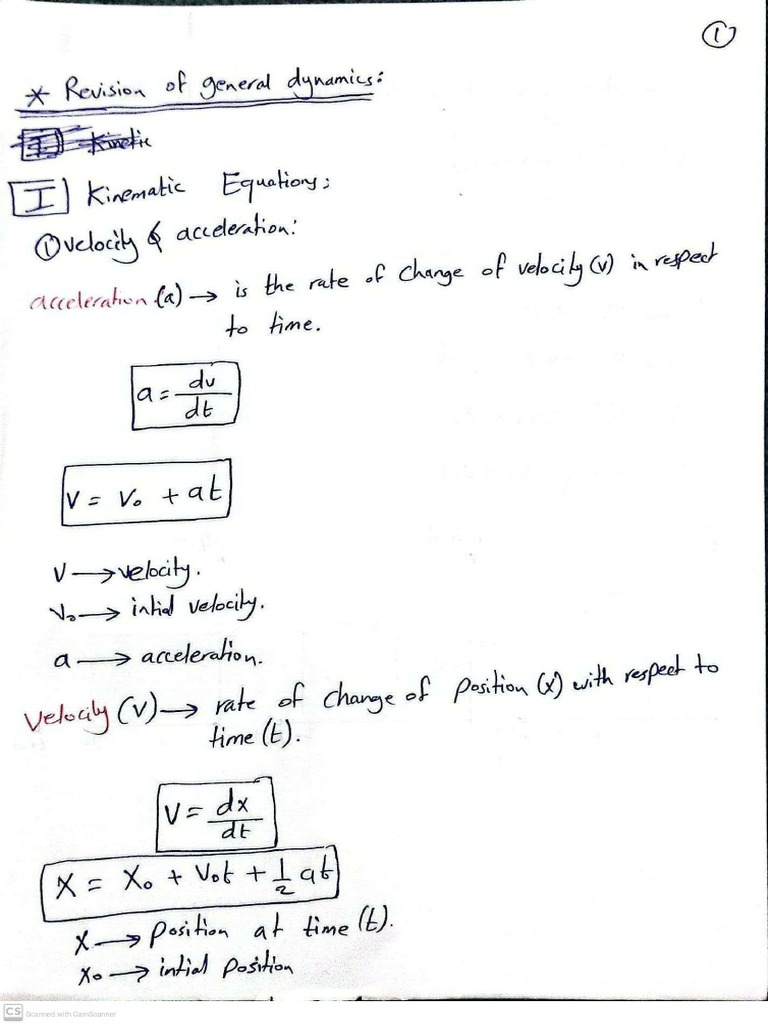 ①
* Revision of general dynamics:
I Kinematic Equations;
① velocity & acceleration:
acceleration (a) → is the rate of change of velocity (v) in respect
to time.
a = dv/dt
V = V₀ + at
V → velocity.
V₀ → intial velocity.
a → acceleration.
Velocity (V) → rate of change of position (x) with respect to
time (t).
V = dx/dt
X = X₀ + V₀t + 1/2 at
X → position at time (t).
X₀ → intial position
CS Scanned with CamScanner